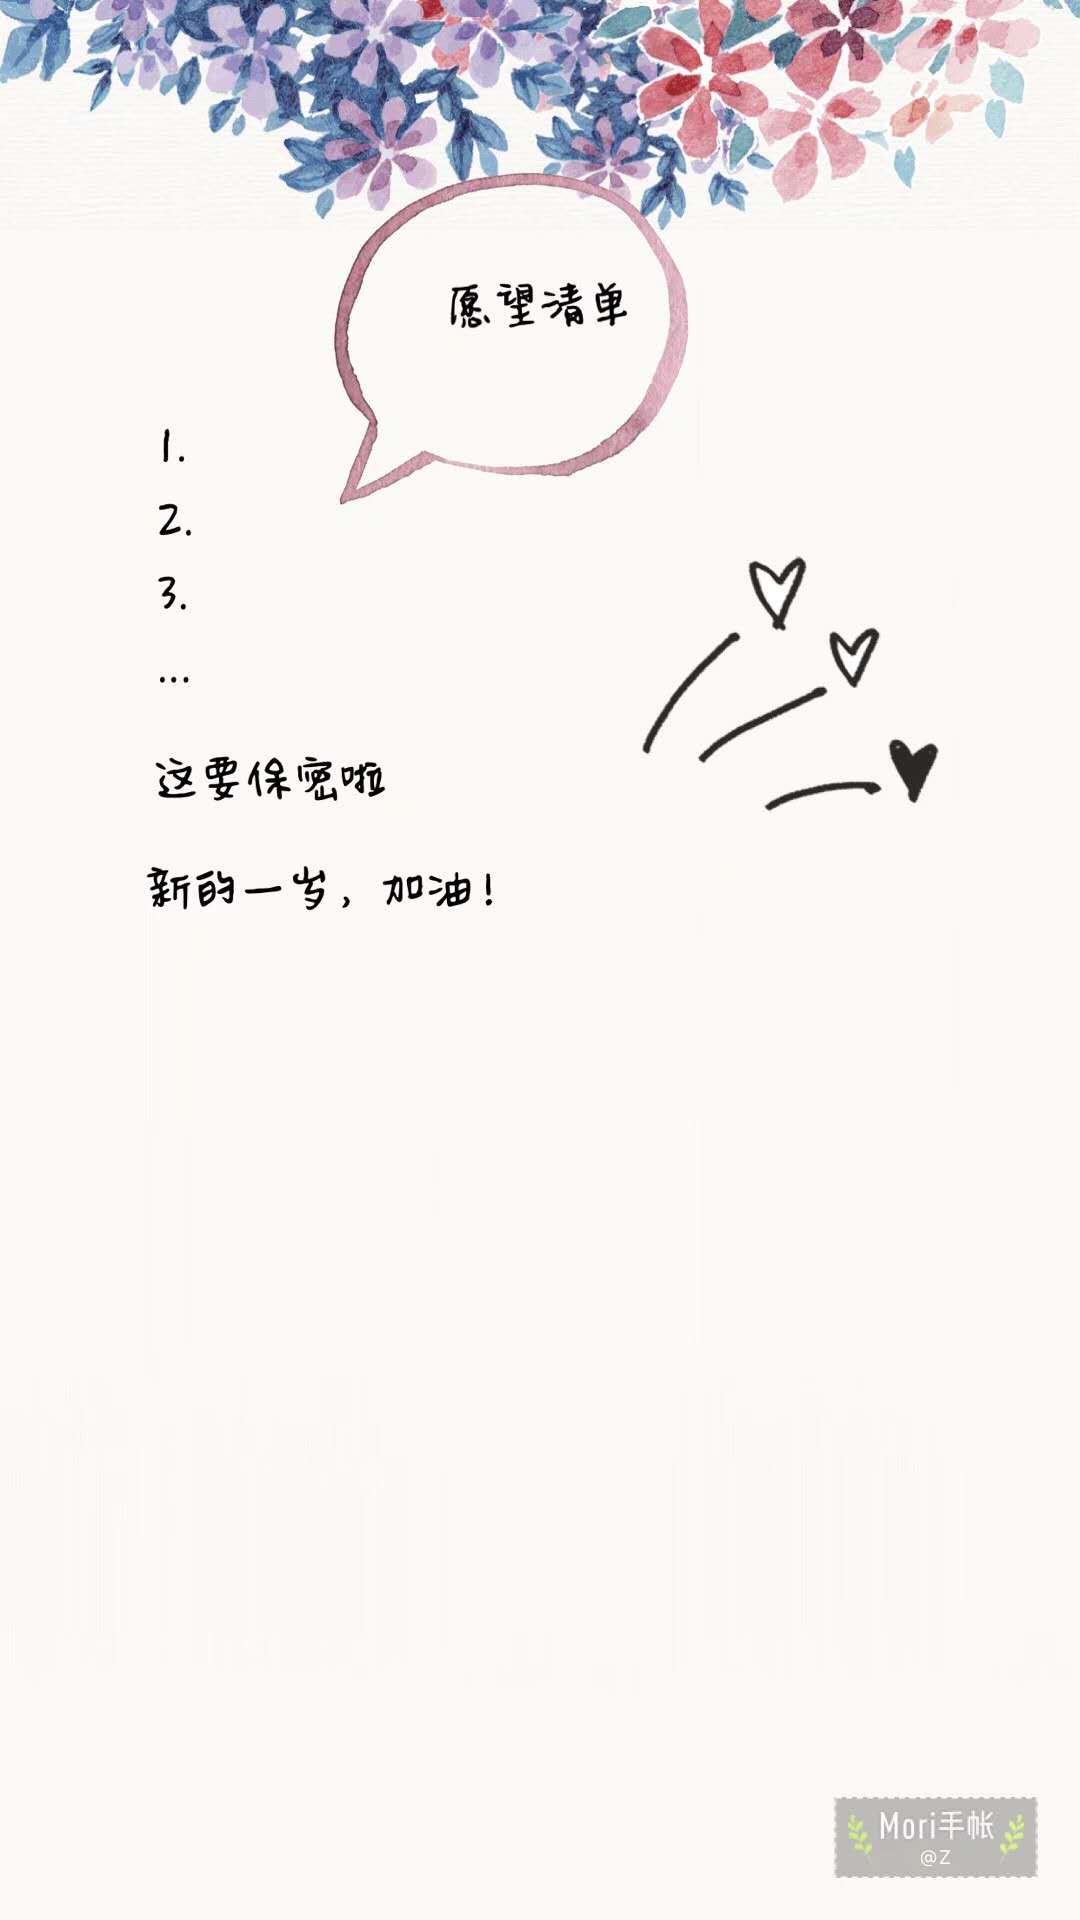 愿望清单
1.
2.
3.
...
这要保密啦
新的一岁，加油！
Mori手帐
@Z